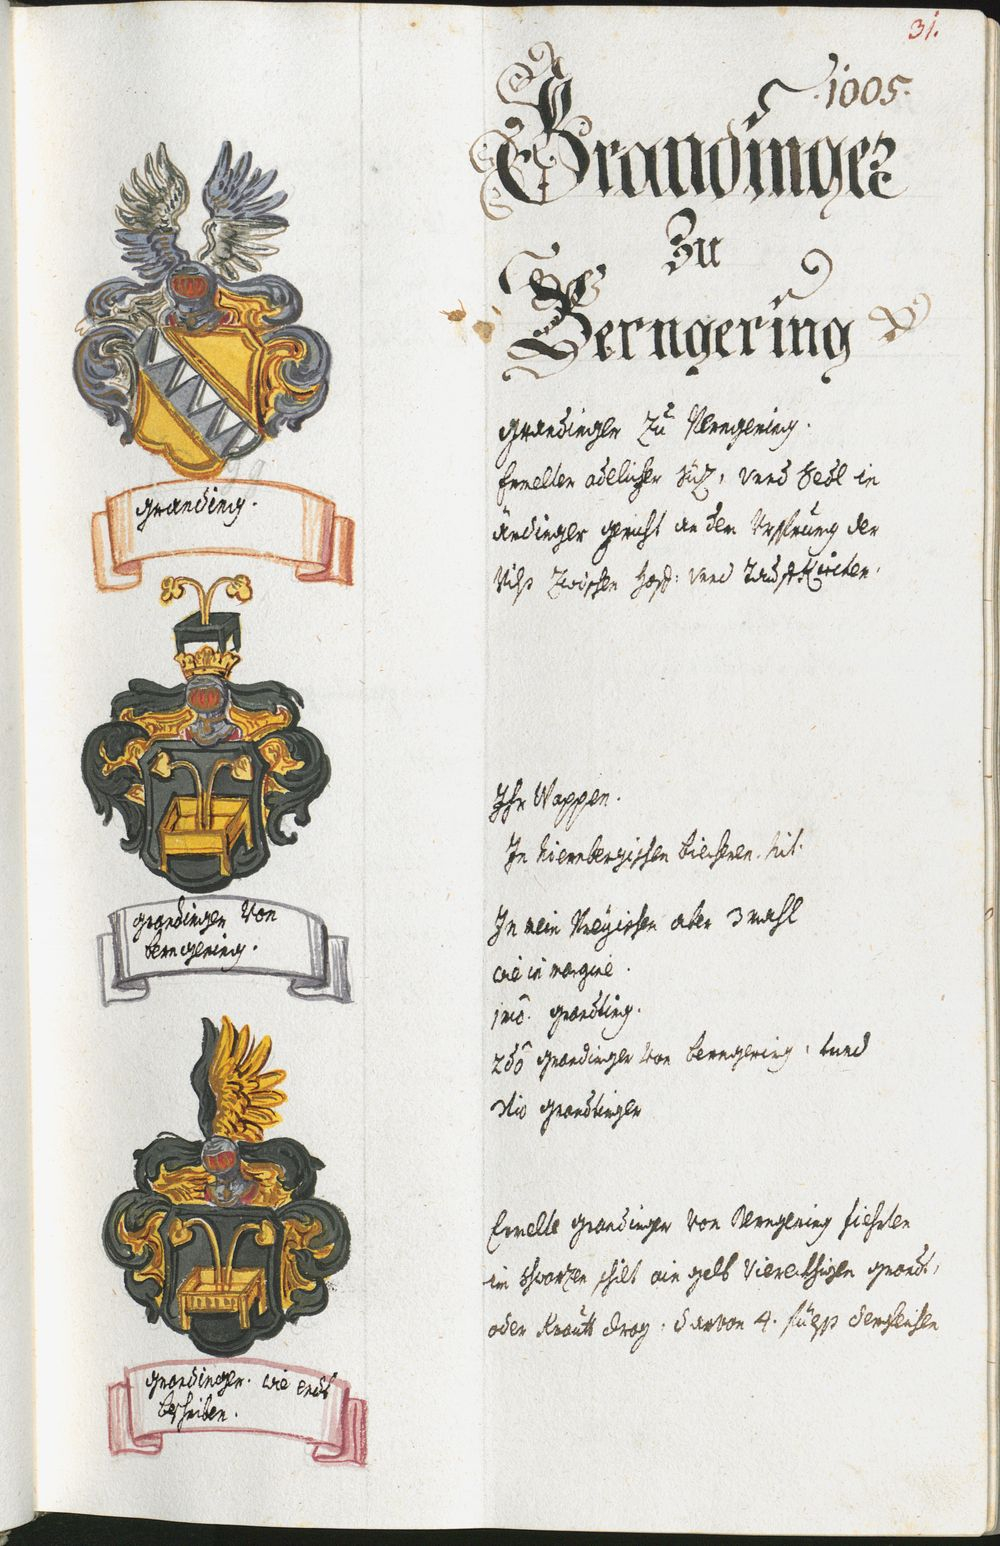 31.
1005.
Grandinger
Zu
Berngering
Grandinger zu Berngering.
Ermelter adelicher Siz, vnnd Sedl in
ärdinger gericht an dem Vrsprung der
Vilß zwischen Hoff: vnnd Tauffkürchen.
Ihr Wappen.
In Niernbergischen biechern. Nit.
In mein Preyischen aber 3 mahl
wie in margine.
1mo. Granding.
2do Grandinger von Berngering, vnnd
3tio Grandinger
Ermelte Grandinger von Berngering fiehrten
im schwarzen schilt ain gelb viereckhigen grandt,
oder trog, darvon 4. füeß dergleichen
Granding.
Grandinger Von
Berngering.
Grandinger. wie endts
beschriben.